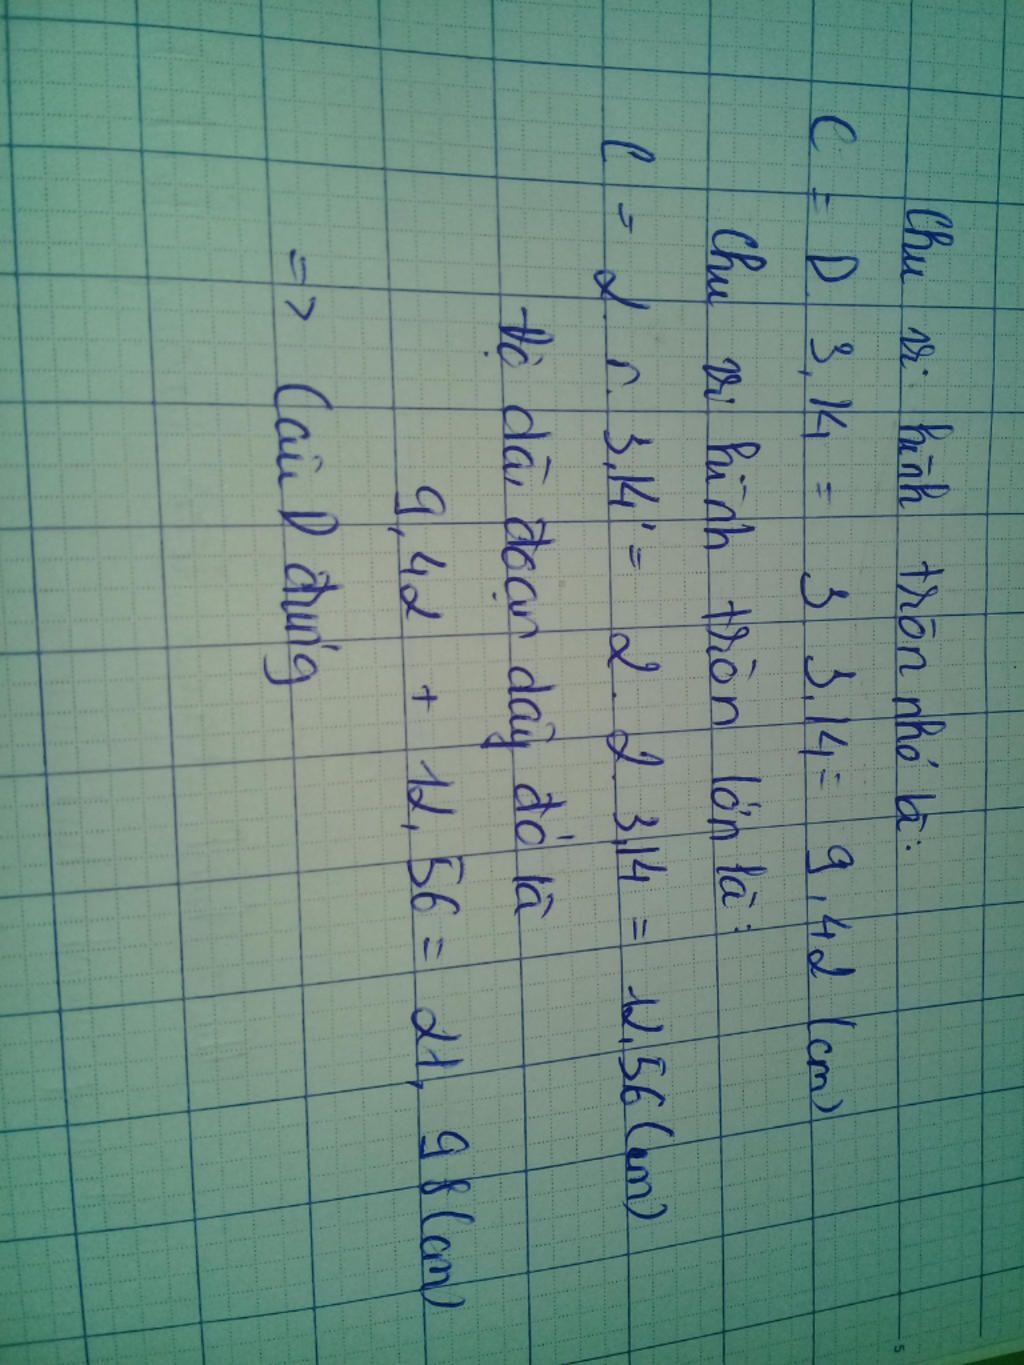 Chu vi hình tròn nhỏ là:
C = D. 3,14 = 3 3,14 = 9,42 (cm)
Chu vi hình tròn lớn là:
C = 2. r. 3,14 = 2. 2. 3,14 = 12,56 (cm)
Độ dài đoạn dây đó là
9,42 + 12,56 = 21,98 (cm)
=> Câu D đúng
5